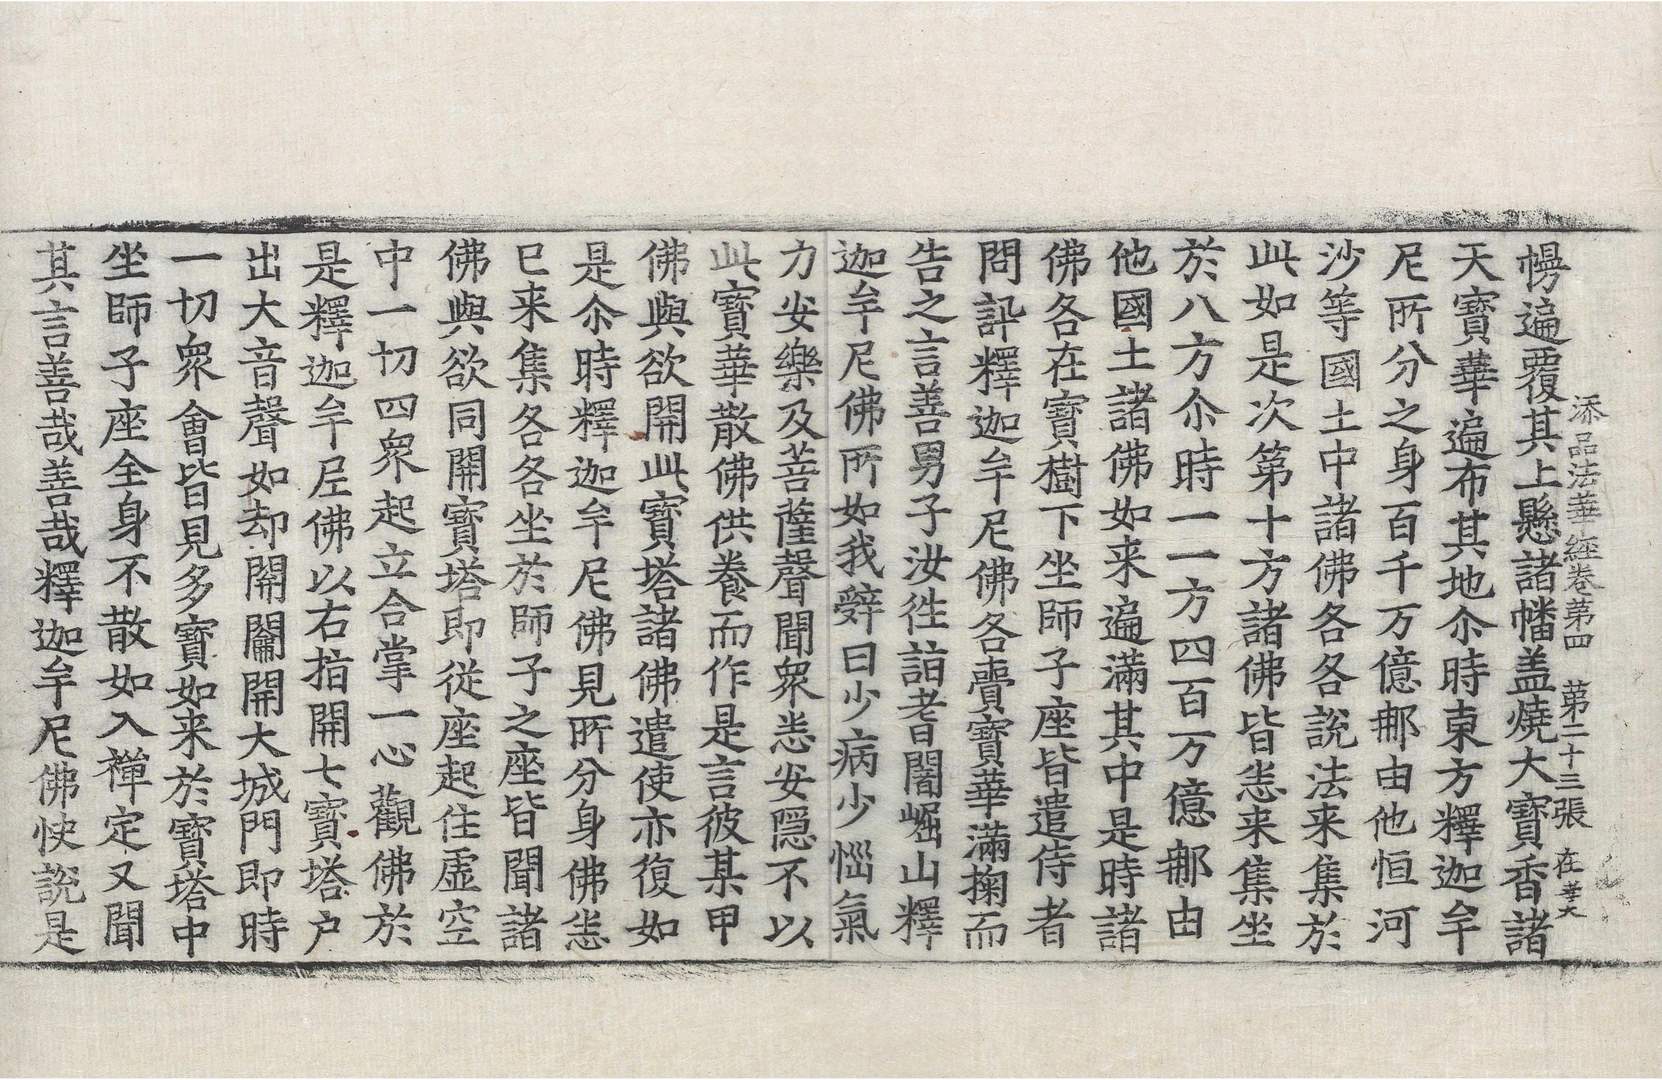 添品法華經卷第四　第二十三張　在
幔遍覆其上懸諸幡盖燒大寶香諸
天寶華遍布其地尒時東方釋迦牟
尼所分之身百千万億那由他恒河
沙等國土中諸佛各各說法来集於
此如是次第十方諸佛皆悉来集坐
於八方尒時一一方四百万億那由
他國土諸佛如来遍滿其中是時諸
佛各在寶樹下坐師子座皆遣侍者
問訊釋迦牟尼佛各賷寶華滿掬而
告之言善男子汝徃詣耆闍崛山釋
迦牟尼佛所如我辤曰少病少惱氣
力安樂及菩薩聲聞衆悉安隱不以
此寶華散佛供養而作是言彼某甲
佛與欲開此寶塔諸佛遣使亦復如
是尒時釋迦牟尼佛見所分身佛悉
已来集各各坐於師子之座皆聞諸
佛與欲同開寶塔即從座起住虛空
中一切四衆起立合掌一心觀佛於
是釋迦牟尼佛以右指開七寶塔户
出大音聲如却關鑰開大城門即時
一切衆會皆見多寶如来於寶塔中
坐師子座全身不散如入禪定又聞
其言善哉善哉釋迦牟尼佛快說是